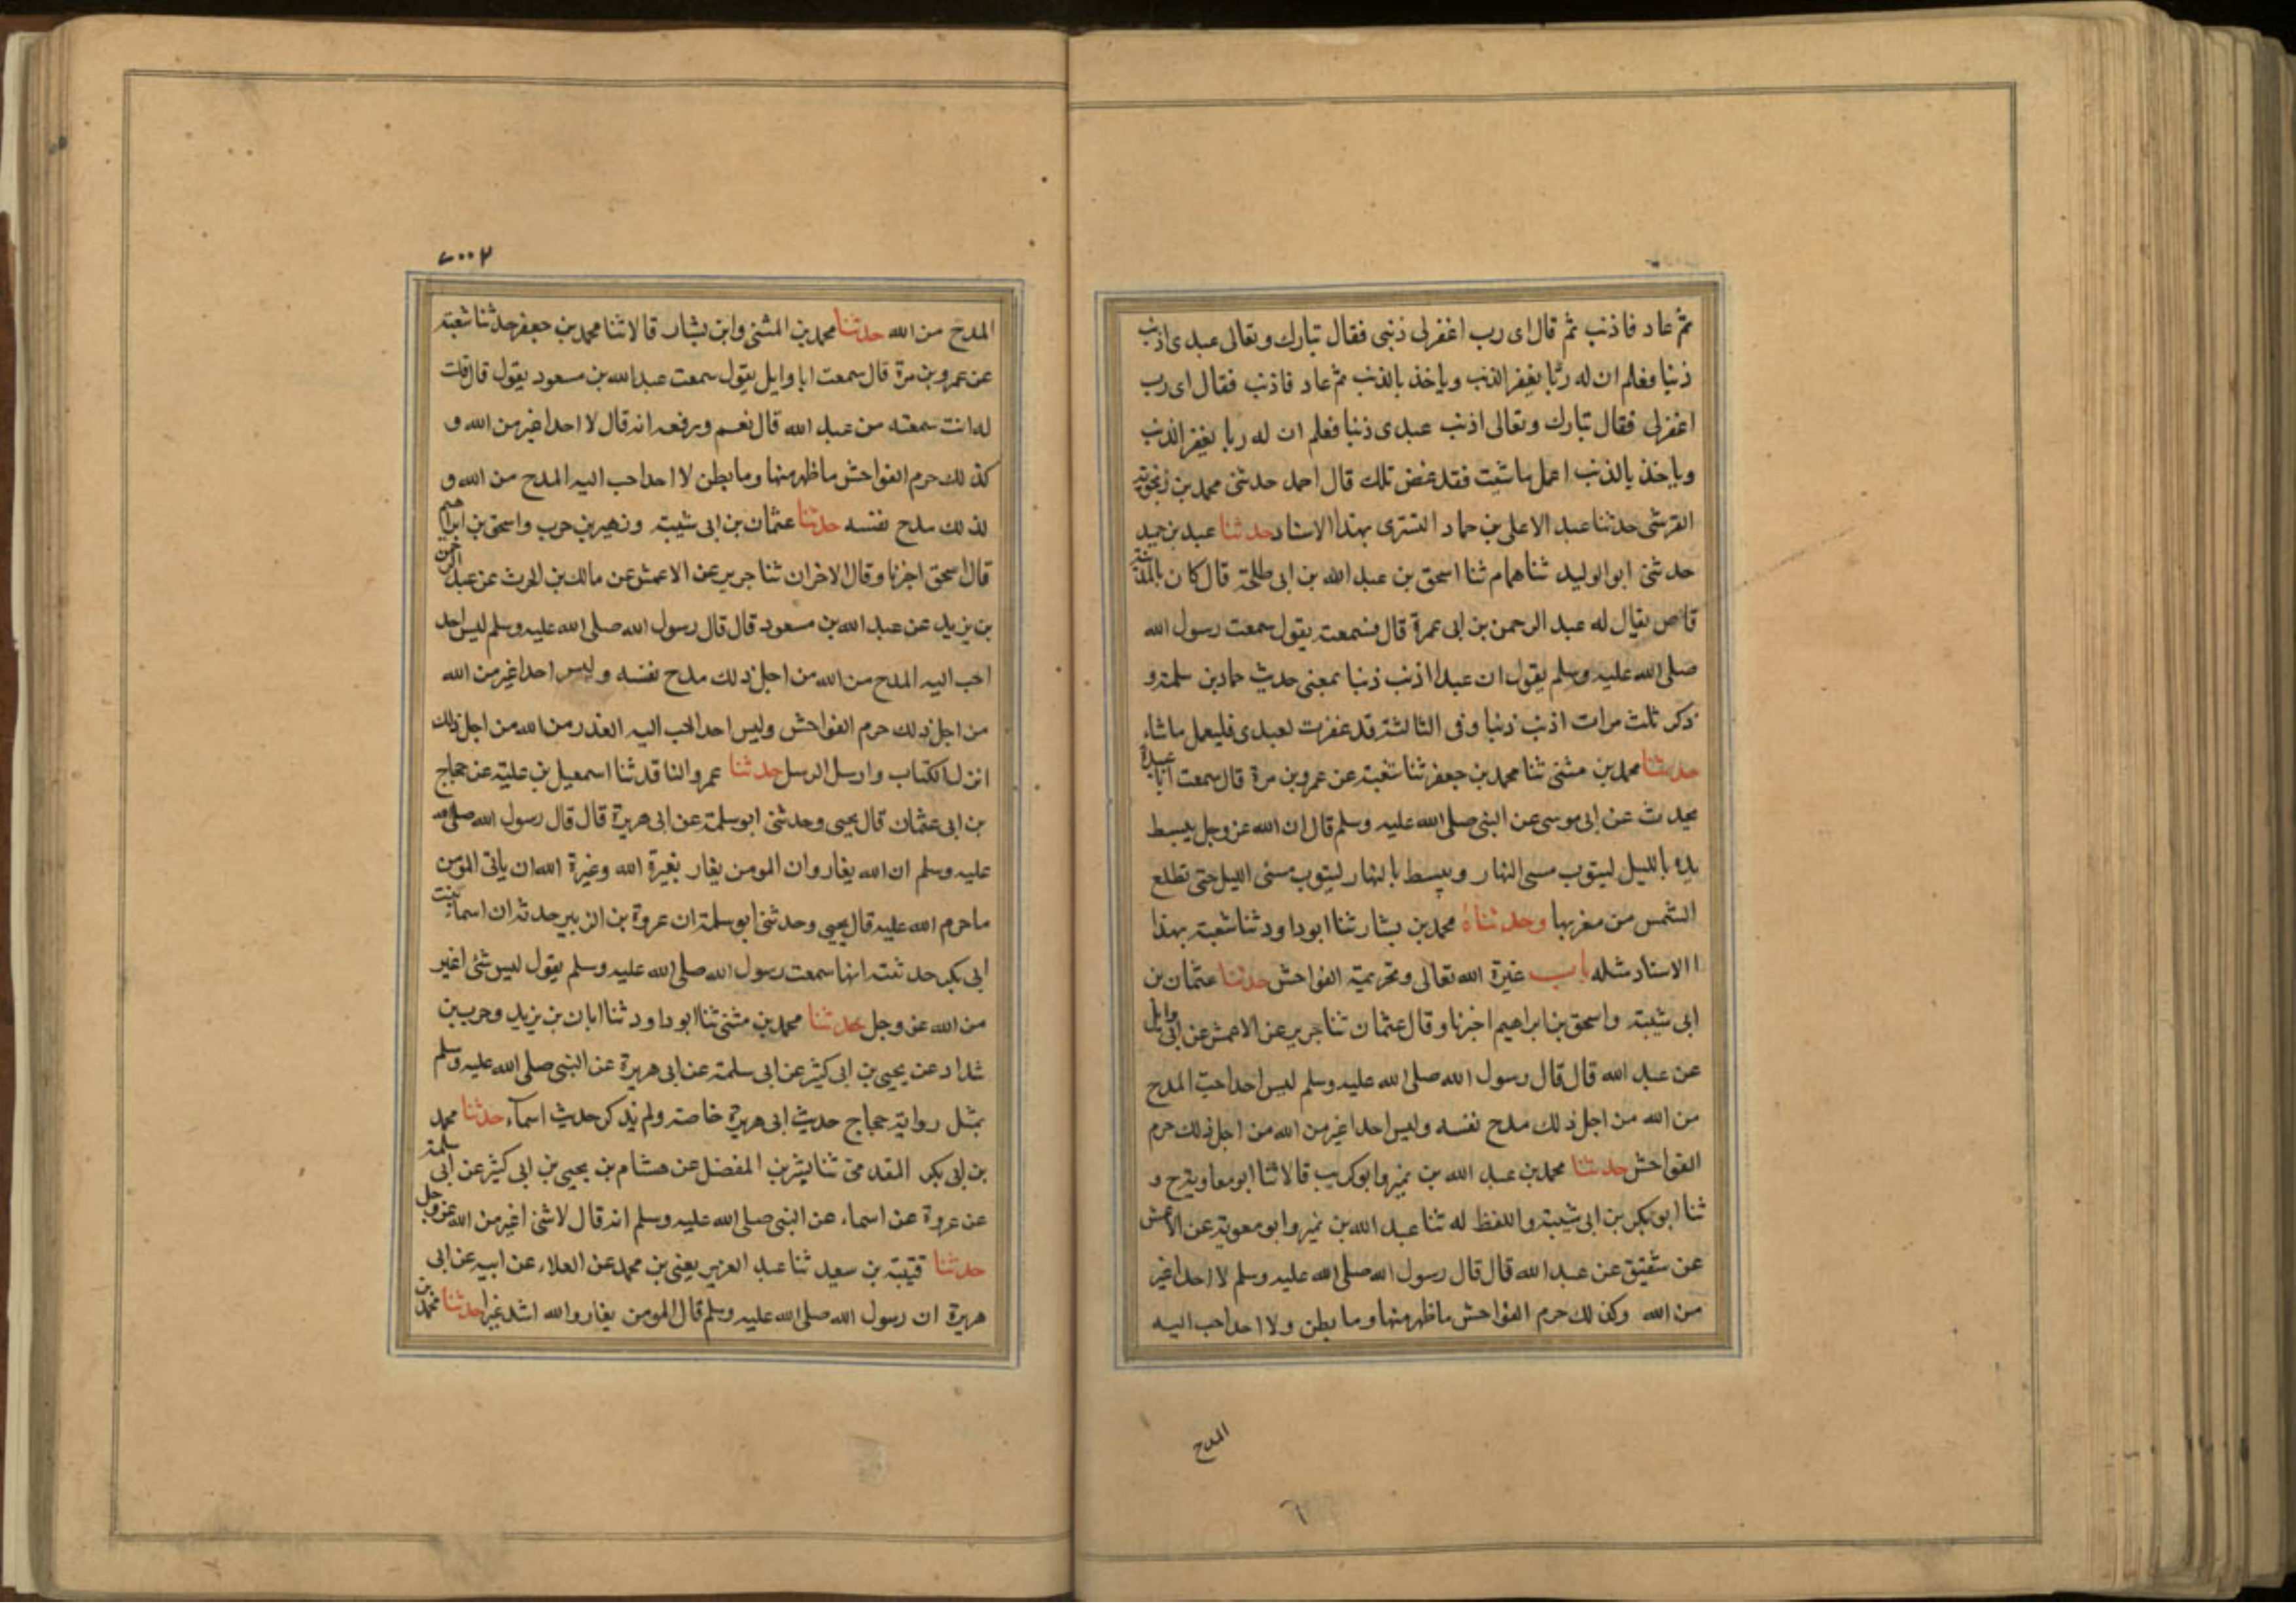 ثم عاد فاذنب ثم قال اى رب اغفرلى ذنبى فقال تبارك وتعالى عبدى اذنب
ذنبا فعلم ان له ربّا يغفر الذنب وياخذ بالذنب ثم عاد فاذنب فقال اى رب
اغفرلى فقال تبارك وتعالى اذنب عبدى ذنبا فعلم ان له ربا يغفر الذنب
وياخذ بالذنب اعمل ما شئت فقد غفر تلك قال احمد حدثنى محمد بن زنجوية
القرشى حدثنا عبد الاعلى بن حماد النترى بهذا الاسناد حدثنا عبد بن حميد
حدثنى ابو الوليد ثنا همام ثنا اسحق بن عبد الله بن ابى طلحة قال كان بالمدينة
قاص يقال له عبد الرحمن بن ابى عمرة قال فسمعته يقول سمعت رسول الله
صلى الله عليه وسلم يقول ان عبدا اذنب ذنبا بمعنى حديث حماد بن سلمة و
ذكر ثلث مرات اذنب ذنبا وفى الثالثة قد غفرت لعبدى فليعمل ما شاء
حدثنا محمد بن مثنى ثنا محمد بن جعفر ثنا شعبة عن عمرو بن مرة قال سمعت ابا عبيدة
يحدث عن ابى موسى عن النبى صلى الله عليه وسلم قال ان الله عز وجل يبسط
يده بالليل ليتوب مسى النهار ويبسط بالنهار ليتوب مسئ الليل حتى تطلع
الشمس من مغربها وحدثناه محمد بن بشار ثنا ابو داود ثنا شعبة بهذا
الاسناد مثله باب غيرة الله تعالى وتحريمة الفواحش حدثنا عثمان بن
ابى شيبة واسحق بن ابراهيم اخبرنا وقال عثمان ثنا جرير عن الاعمش عن ابى وايل
عن عبد الله قال قال رسول الله صلى الله عليه وسلم ليس احد احبّ المدح
من الله من اجل ذلك مدح نفسه وليس احد اغير من الله من اجل ذلك حرم
الفواحش حدثنا محمد بن عبد الله بن نمير وابو كريب قالا ثنا ابو معاوية ح و
ثنا ابو بكر بن ابى شيبة واللفظ له ثنا عبد الله بن نمير وابو معوية عن الاعمش
عن شقيق عن عبد الله قال قال رسول الله صلى الله عليه وسلم لا احد اغير
من الله وكذلك حرم الفواحش ما ظهر منها وما بطن ولا احد احب اليه
المدح
المدح من الله حدثنا محمد بن المثنى وابن بشار قالا ثنا محمد بن جعفر حدثنا شعبة
عن عمرو بن مرة قال سمعت ابا وايل يقول سمعت عبد الله بن مسعود يقول قال قلت
له انت سمعته من عبد الله قال نعم ويرفعه انه قال لا احد اغير من الله و
كذلك حرم الفواحش ما ظهر منها وما بطن لا احد احب اليه المدح من الله و
لذلك مدح نفسه حدثنا عثمان بن ابى شيبة وزهير بن حرب واسحق بن ابراهيم
قال اسحق اخبرنا وقال الاخران ثنا جرير عن الاعمش عن مالك بن الحرث عن عبد الرحمن
بن يزيد عن عبد الله بن مسعود قال قال رسول الله صلى الله عليه وسلم ليس احد
احب اليه المدح من الله من اجل ذلك مدح نفسه وليس احد اغير من الله
من اجل ذلك حرم الفواحش وليس احد احب اليه العذر من الله من اجل ذلك
انزل الكتاب وارسل الرسل حدثنا عمرو الناقد ثنا اسمعيل بن علية عن حجاج
بن ابى عثمان قال يحيى وحدثنى ابو سلمة عن ابى هريرة قال قال رسول الله صلى الله
عليه وسلم ان الله يغار وان المومن يغار بغيرة الله وغيرة الله ان ياتى المومن
ما حرم الله عليه قال يحيى وحدثنى ابو سلمة ان عروة بن الزبير حدثه ان اسماء بنت
ابى بكر حدثته انها سمعت رسول الله صلى الله عليه وسلم يقول ليس شئ اغير
من الله عز وجل حدثنا محمد بن مثنى ثنا ابو داود ثنا ابان بن يزيد وحرب بن
شداد عن يحيى بن ابى كثير عن ابى سلمة عن ابى هريرة عن النبى صلى الله عليه وسلم
بمثل رواية حجاج حديث ابى هريرة خاصة ولم يذكر حديث اسمآء حدثنا محمد
بن ابى بكر المقدمى ثنا بشر بن المفضل عن هشام بن يحيى بن ابى كثير عن ابى سلمة
عن عروة عن اسماء عن النبى صلى الله عليه وسلم انه قال لا شئ اغير من الله عز وجل
حدثنا قتيبة بن سعيد ثنا عبد العزيز يعنى بن محمد عن العلاء عن ابيه عن ابى
هريرة ان رسول الله صلى الله عليه وسلم قال المومن يغار والله اشد غيرا حدثنا محمد بن